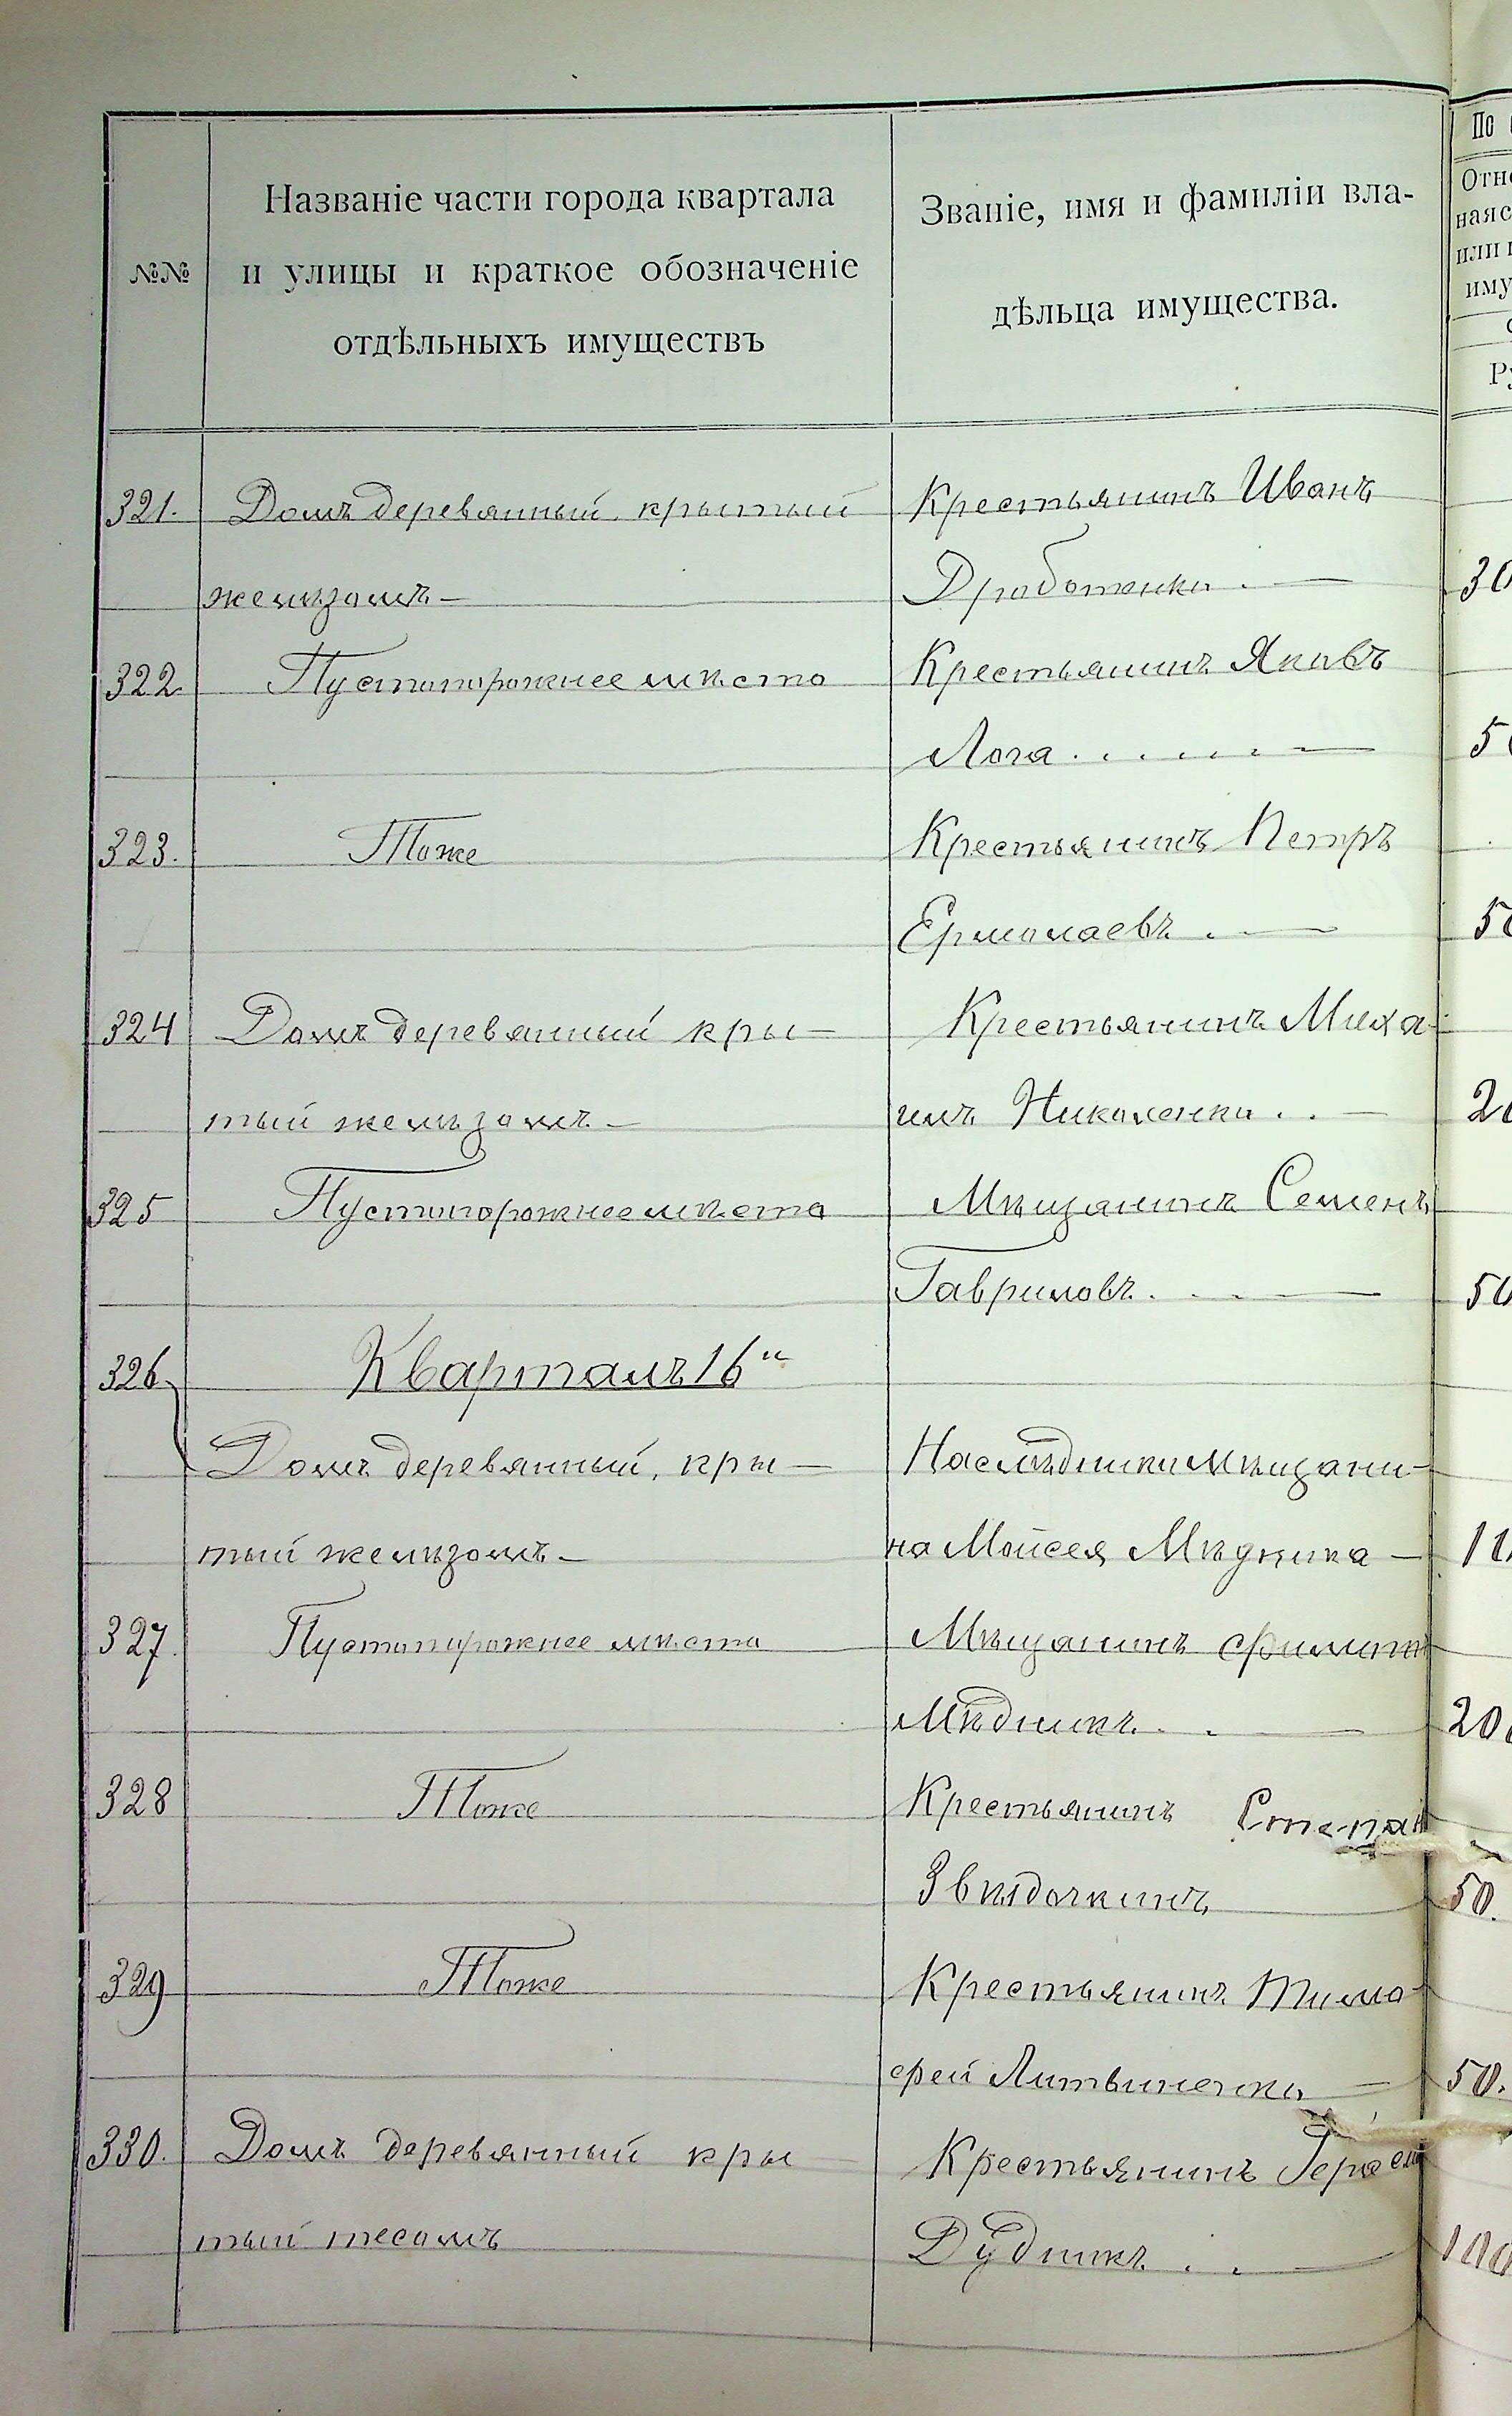 №№
Названіе части города квартала
и улицы и краткое обозначеніе
отдѣльныхъ имуществъ
Званіе, имя и фамиліи вла-
дѣльца имущества.
По
Отн
ная с
или
иму
Ру
321. Домъ деревянный, крытый Крестьянинъ Иванъ
желѣзомъ – Дроботенко . — 30
322 Пустопорожнее мѣсто Крестьянинъ Яковъ
Лога . . . . . — 5
323. Тоже Крестьянинъ Петръ
Ермолаевъ . — 5
324 Домъ деревянный кры – Крестьянинъ Миха-
тый желѣзомъ – илъ Николенко . . — 20
325 Пустопорожнее мѣсто Мѣщанинъ Семенъ
Гавриловъ . . — 50
326 Кварталъ 16й
Домъ деревянный, кры – Наслѣдники мѣщани-
тый желѣзомъ – на Мойсея Мѣдника — 1
327. Пустопорожнее мѣсто Мѣщанинъ
Мѣдникъ . . — 20
328 Тоже Крестьянинъ Степан
Звѣздочкинъ 50.
329 Тоже Крестьянинъ Тимо-
фей Литвиненко — 50.
330. Домъ деревянный кры – Крестьянинъ Герасим
тый тесомъ Дудникъ . . — 100